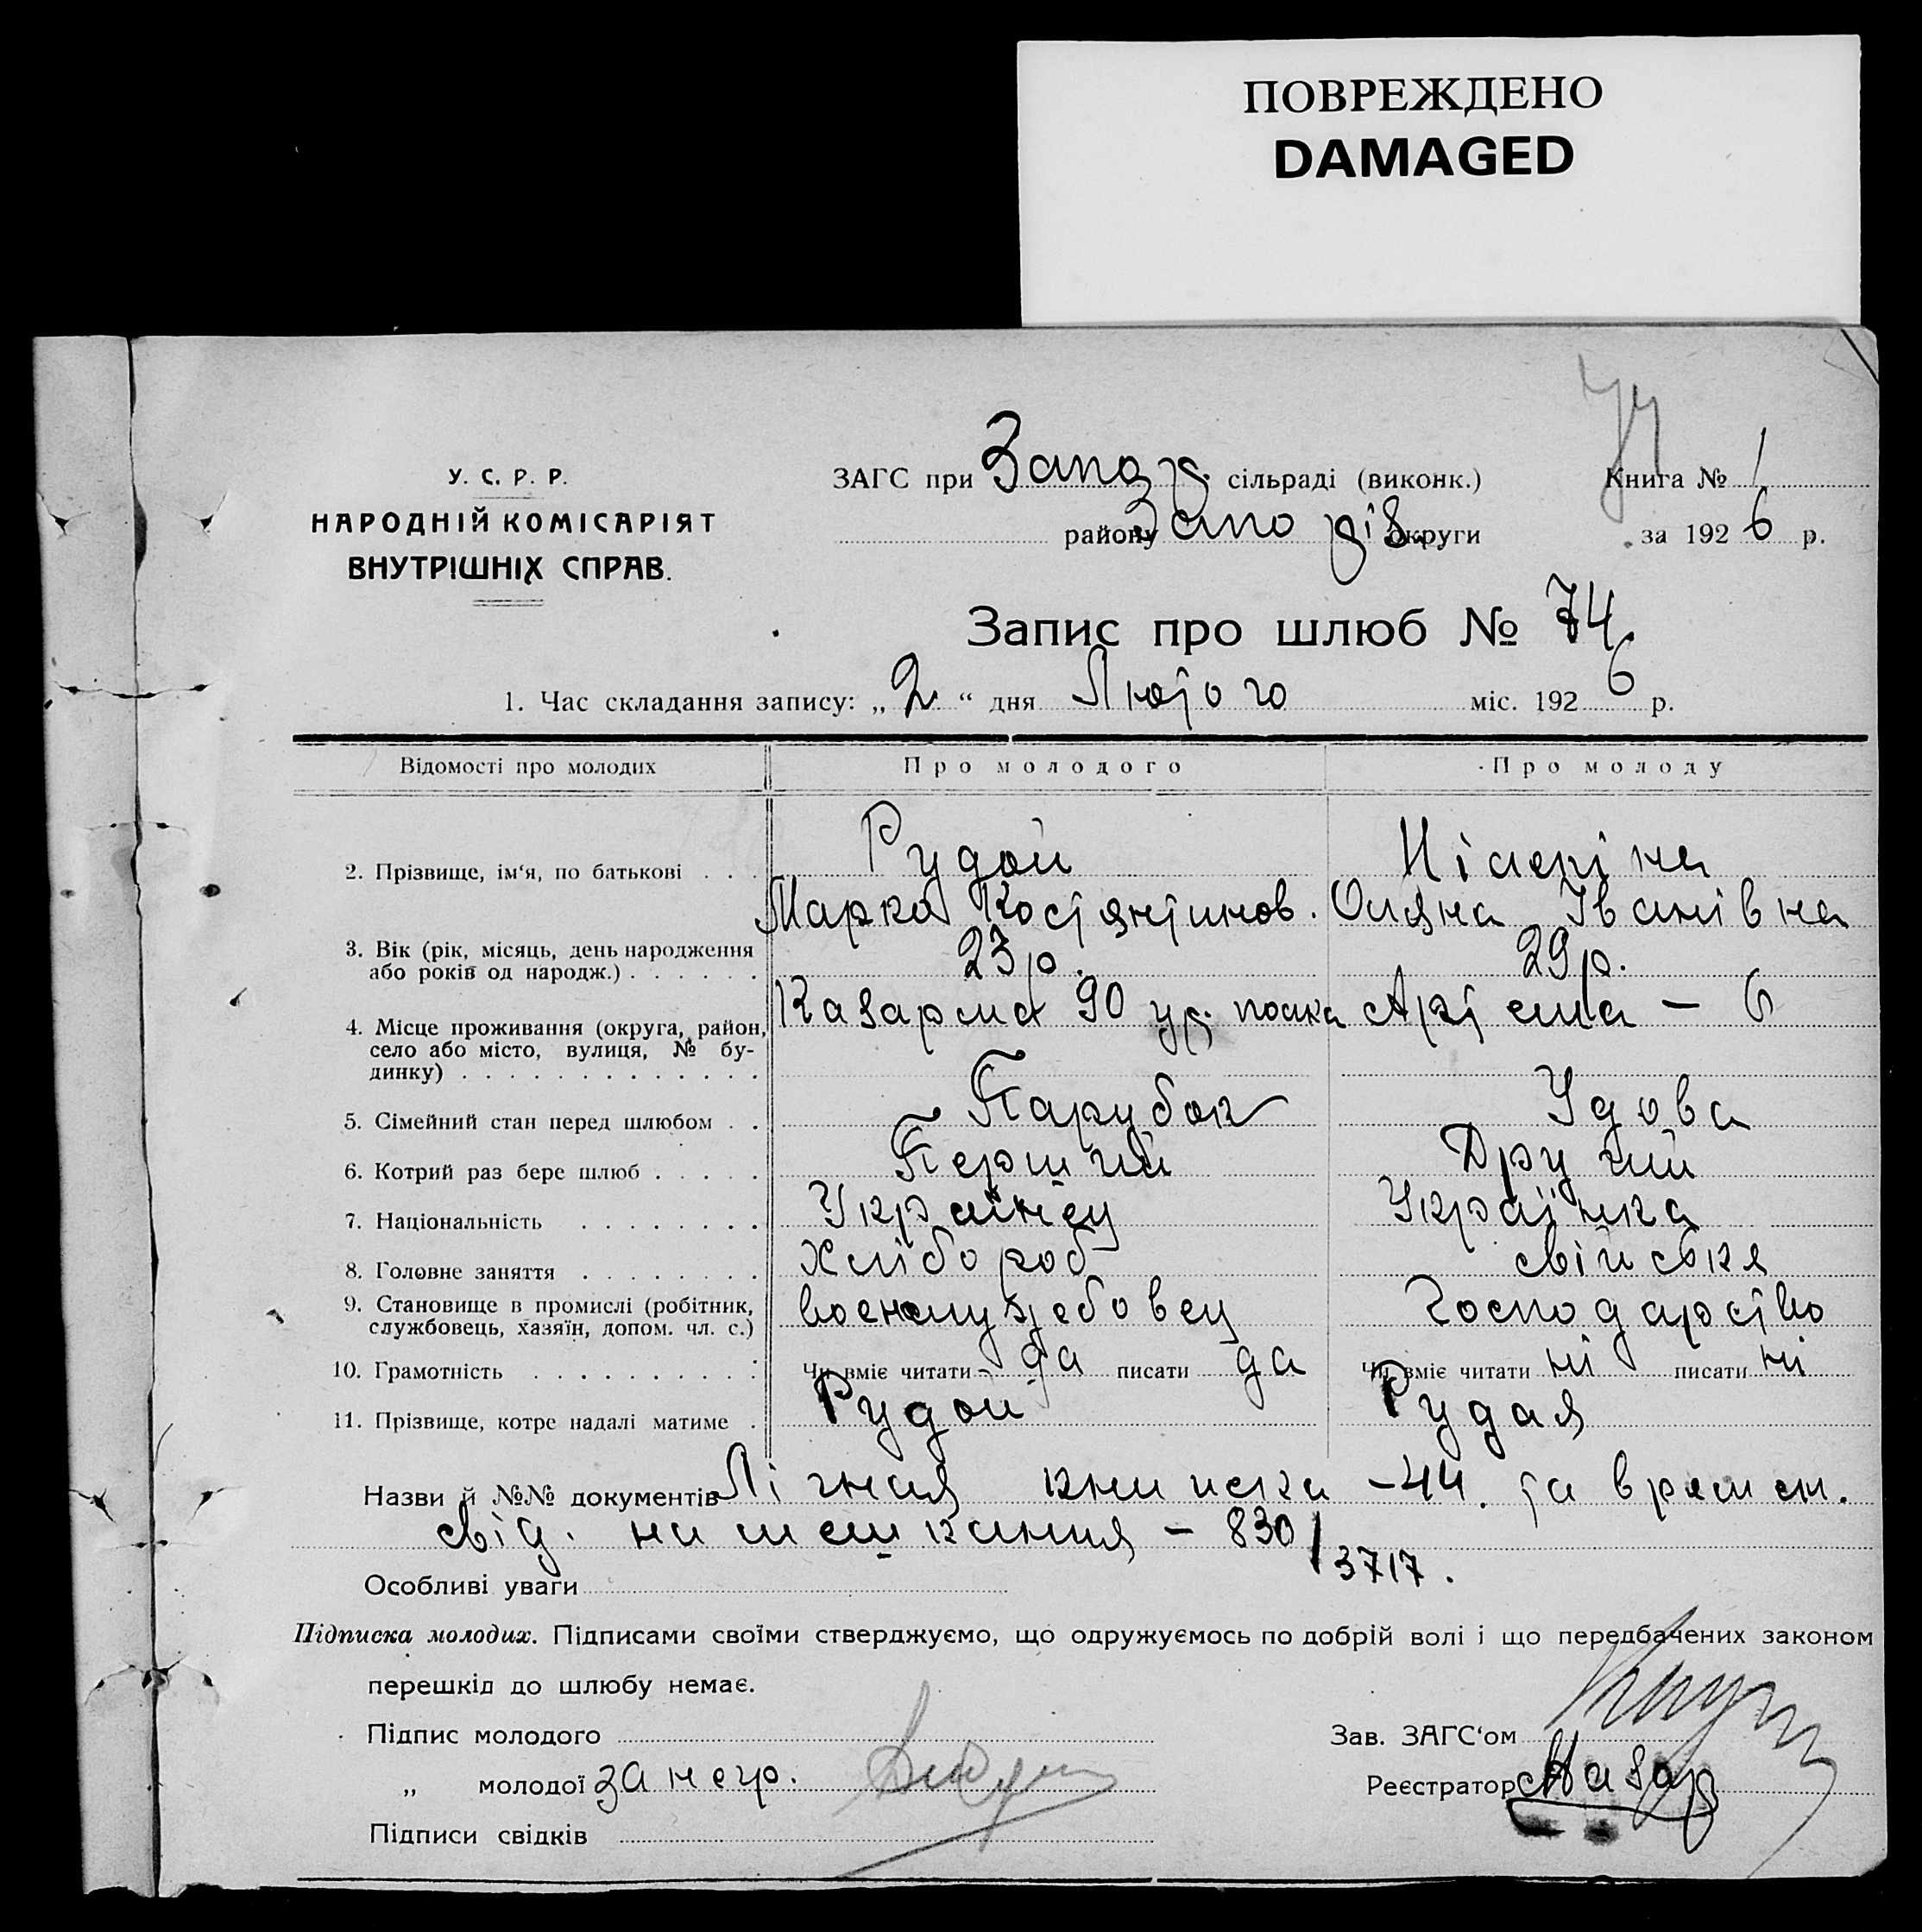 ПОВРЕЖДЕНО
DAMAGED
У. С. Р. Р.
НАРОДНІЙ КОМІСАРІЯТ
ВНУТРІШНІХ СПРАВ.
ЗАГС при Запор. сільраді (виконк.)
району Запорів. округи
Книга № 1
за 1926 р.
Запис про шлюб № 74
1. Час складання запису: „2“ дня Лютого міс. 1926 р.
Відомості про молодих Про молодого Про молоду
2. Прізвище, ім‘я, по батькові . . . Рудой
Марко Костянтинов. Іванівна
3. Вік (рік, місяць, день народження або років од народж.) . . . . . . 23 р. 29 р.
4. Місце проживання (округа, район, село або місто, вулиця, № будинку) . . . . . . . . . . . . . Казарма 90 ур. полка Артема – 6
5. Сімейний стан перед шлюбом . . Парубок Удова
6. Котрий раз бере шлюб . . . . . Перший Другий
7. Національність . . . . . . . . Українец Українка
8. Головне заняття . . . . . . . . Хлібороб свійське
9. Становище в промислі (робітник, службовець, хазяїн, допом. чл. с.) Господарство
10. Грамотність . . . . . . . . . . Чи вміє читати да писати да Чи вміє читати ні писати ні
11. Прізвище, котре надалі матиме . Рудой Рудая
Назви й №№ документів книжка – 44. та времен.
свід. на мешкання – 830/3717.
Особливі уваги
Підписка молодих. Підписами своїми стверджуємо, що одружуємось по добрій волі і що передбачених законом
перешкід до шлюбу немає.
Підпис молодого
„ молодої за негр.
Підписи свідків
Зав. ЗАГС‘ом
Реєстратор Назар